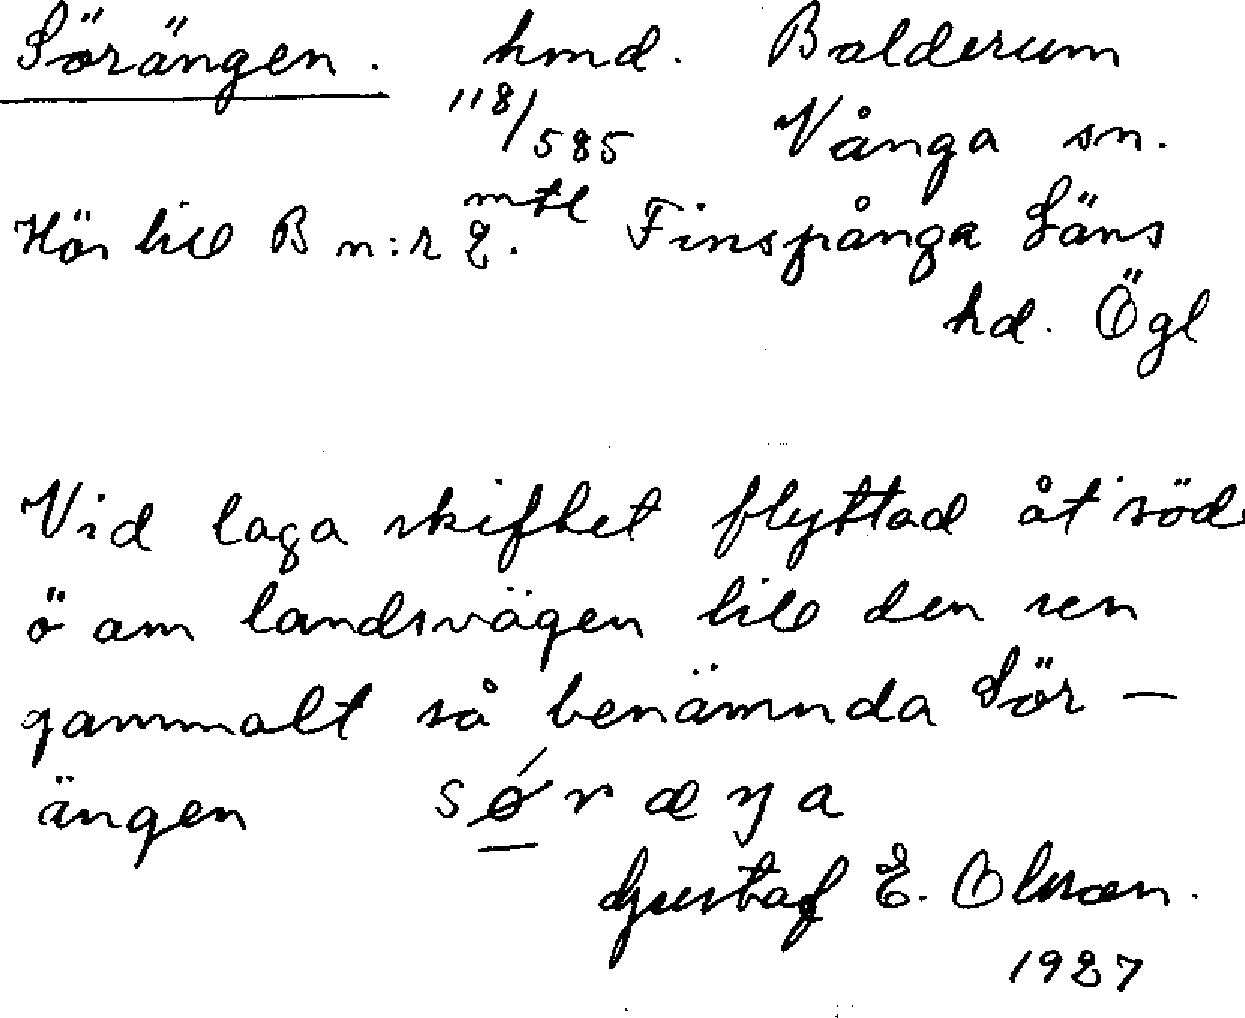 Sörängen. hmd. Balderum
118/585 Vånga sn.
Hör till B n:r 2. mtl Finspånga Läns
hd. Ögl
Vid laga skiftet flyttad åt söd
ö om landsvägen till den sen
gammalt så benämnda Sör-
ängen søræŋa
Gustaf E. Olsson.
1927